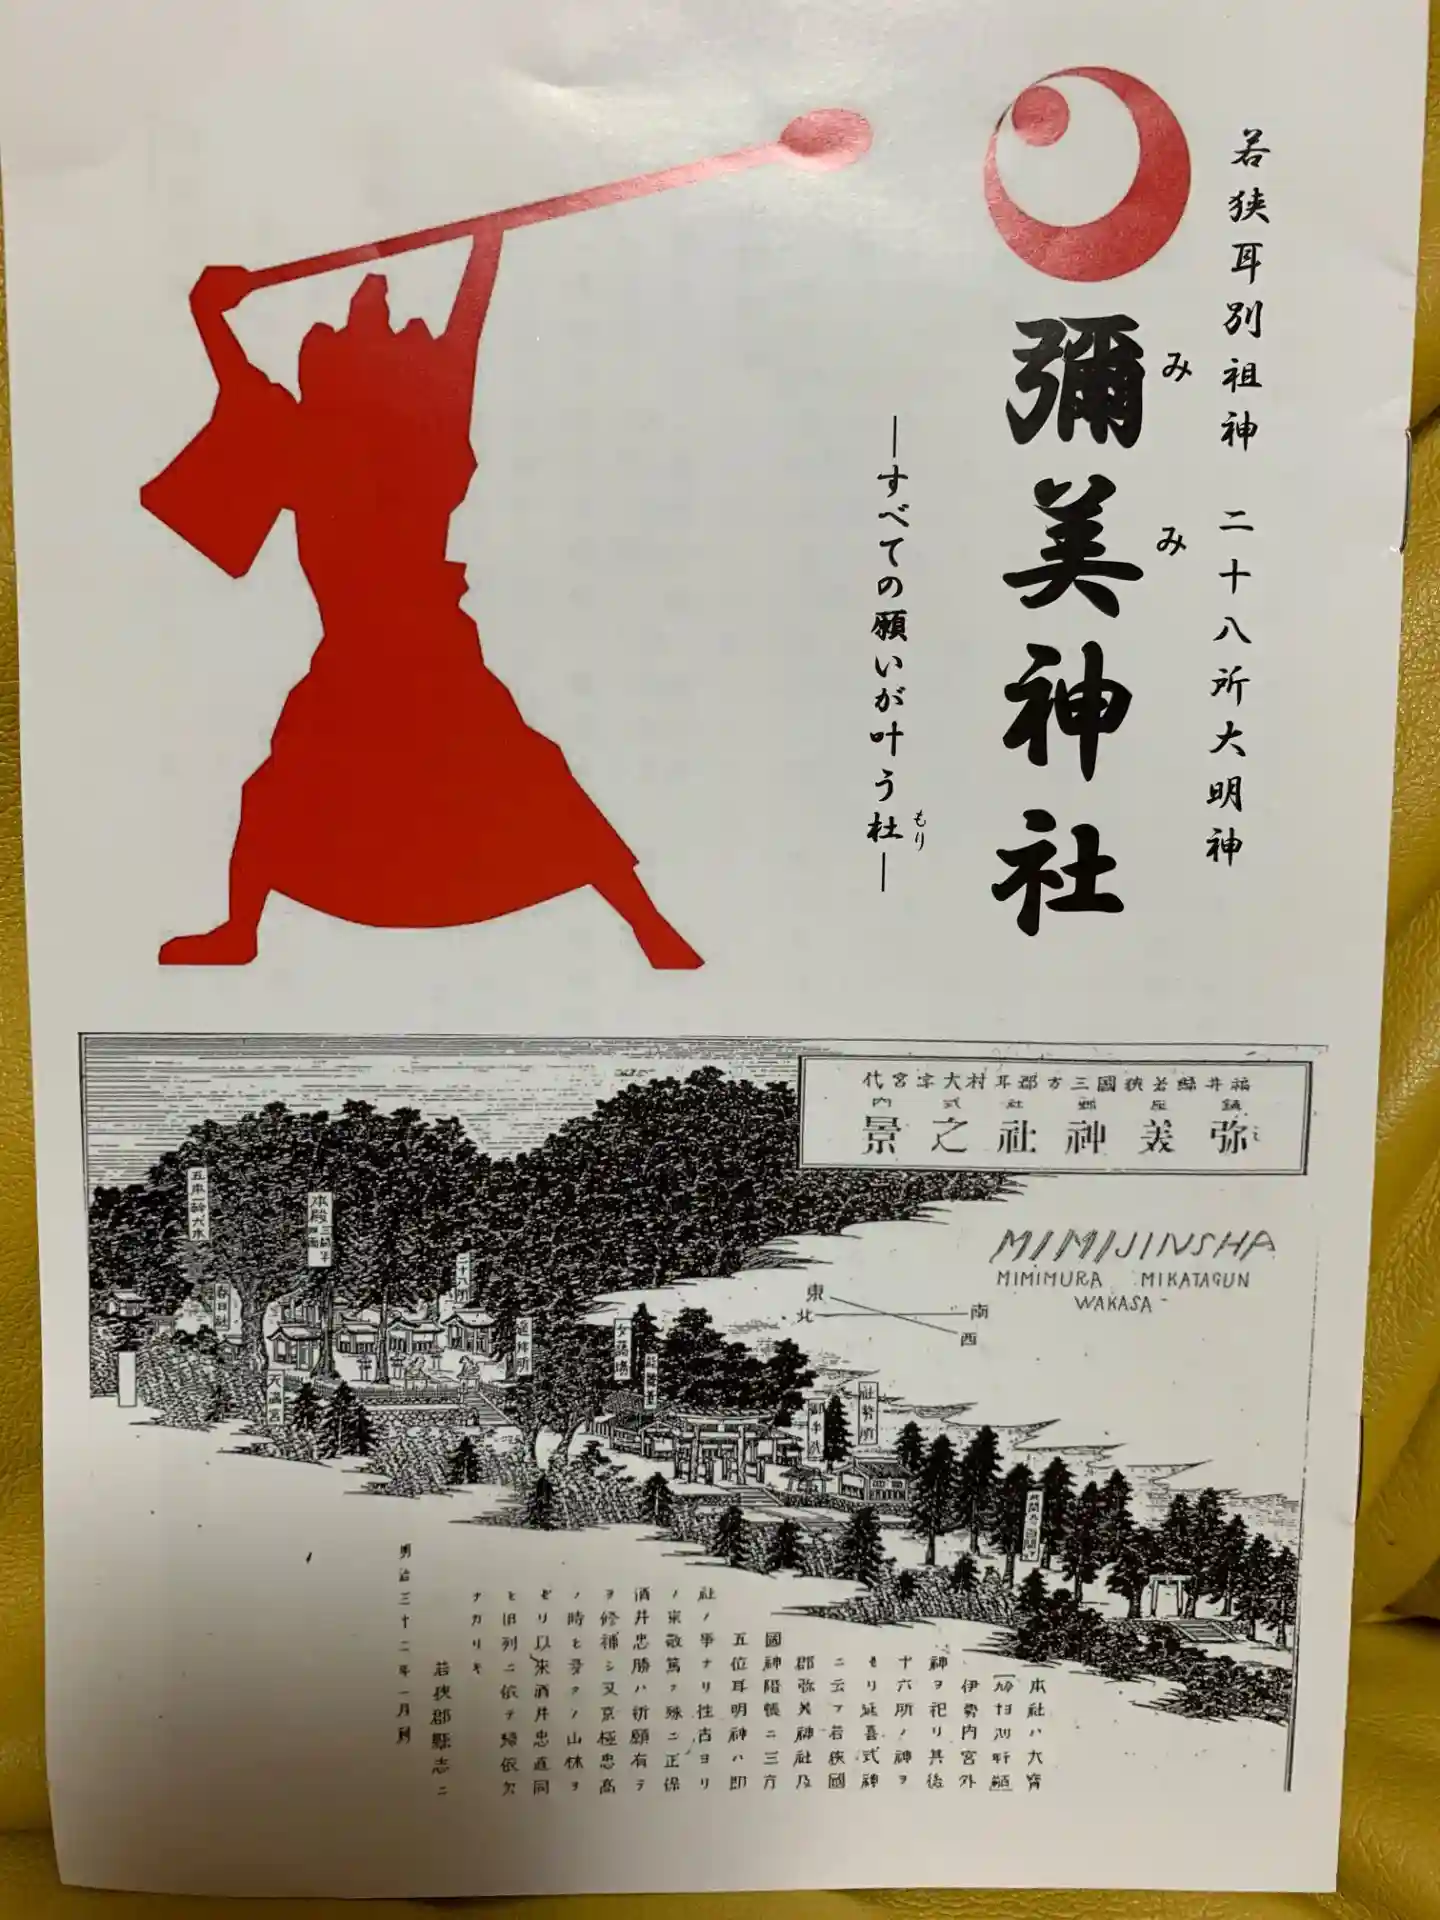 若狭耳別祖神 二十八所大明神
彌美神社
みみ
―すべての願いが叶う杜―
もり
福井縣若狹國三方郡耳村大字宮代
鎮座郷社式内
弥美神社之景
MIMIJINSHA
MIMIMURA MIKATAGUN
WAKASA
東
北
南
西
本殿
春日社
天満宮
二十八所
遥拝所
社務所
本社ハ大寳
伊勢内宮外
神ヲ祀リ其後
十六所ノ神ヲ
モリ延喜式神
ニ云フ若狹國
郡弥美神社及
國神階帳ニ三方
五位耳明神ハ即
社ノ事ナリ往古ヨリ
ノ崇敬篤ク殊ニ正保
酒井忠勝ハ祈願有テ
ヲ修補シ又京極忠高
ノ時
山林ヲ
セリ以来酒井忠直同
ヒ旧列ニ依テ帰依欠
ナカリキ
若狹郡縣志ニ
明治三十二年一月